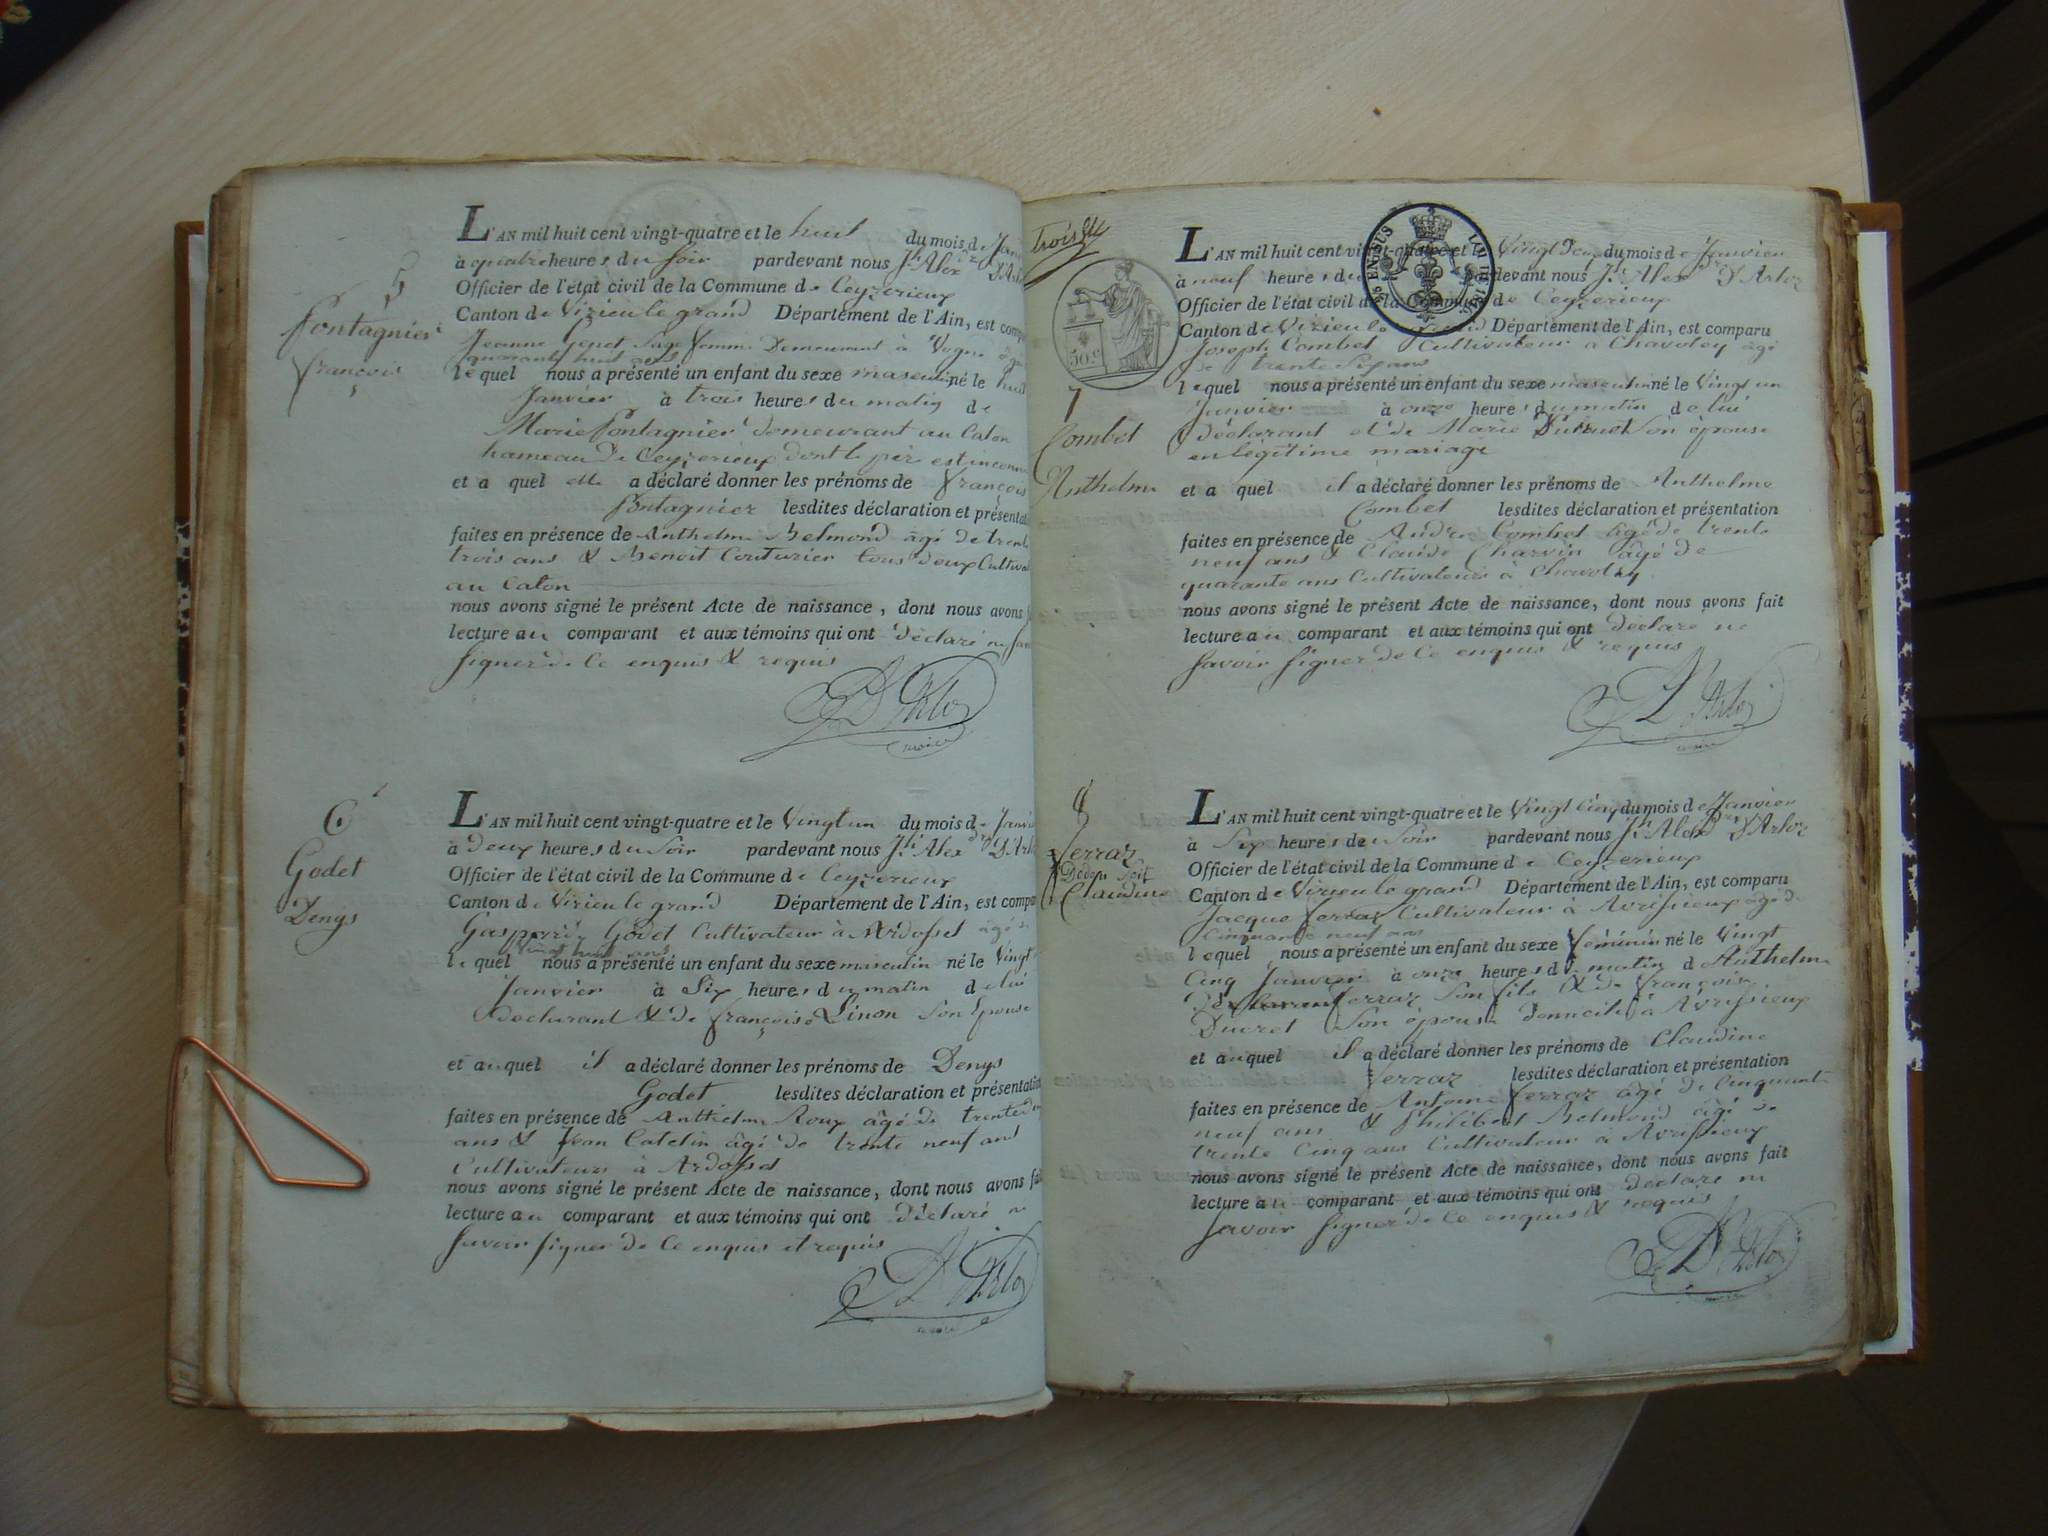 5
Fontagnier
françois
L'AN mil huit cent vingt-quatre et le huit du mois de Janv
à quatre heures du soir pardevant nous Jh Alexdre D'Arl
Officier de l'état civil de la Commune de Ceyzerieux
Canton de Virieu le grand Département de l'Ain, est comp
Jeanne genet Sage femme Demeurant à Vogn âg
quarante huit ans
lequel nous a présenté un enfant du sexe masculin né le huit
Janvier à trois heures du matin de
Marie Fontagnier demeurant au Caton
hameau De Ceyzerieux dont le père est inconn
et a quel elle a déclaré donner les prénoms de françois
Fontagnier lesdites déclaration et présentat
faites en présence de Anthelme Belmond âgé de trente
trois ans & Benoit Couturier tous deux Cultiva
au Caton
nous avons signé le présent Acte de naissance, dont nous avons
lecture au comparant et aux témoins qui ont déclaré ne sav
signer de Ce enquis & requis
D'Arloz
maire
6
Godet
Denys
L'AN mil huit cent vingt-quatre et le Vingt un du mois de Janvi
à deux heures du Soir pardevant nous Jh Alexdre D'Arl
Officier de l'état civil de la Commune de Ceyzerieux
Canton de Virieu le grand Département de l'Ain, est compa
Gaspard Godet Cultivateur à Ardosset âgé de
Vingt huit ans
lequel nous a présenté un enfant du sexe masculin né le Vingt
Janvier à Six heures du matin de lui
déclarant & de françoise Linon Son Epouse
et auquel il a déclaré donner les prénoms de Denys
Godet lesdites déclaration et présentation
faites en présence de Anthelme Roux âgé de trente
ans & Jean Catelin âgé de trente neuf ans
Cultivateurs à Ardosset
nous avons signé le présent Acte de naissance, dont nous avons fai
lecture au comparant et aux témoins qui ont déclaré n
Savoir signer de Ce enquis et requis
D'Arloz
maire
trois
50 c
7
Combet
Anthelme
L'AN mil huit cent vingt-quatre et Vingt Deux du mois de Janvier
à neuf heures du pardevant nous Jh Alexdre D'Arloz
Officier de l'état civil de la Commune de Ceyzerieux
Canton de Virieu le grand Département de l'Ain, est comparu
Joseph Combet Cultivateur à Chavoley âgé
de trente Six ans
lequel nous a présenté un enfant du sexe masculin né le Vingt un
Janvier à onze heures du matin de lui
déclarant et de Marie Son épouse
en légitime mariage
et a quel il a déclaré donner les prénoms de Anthelme
Combet lesdites déclaration et présentation
faites en présence de André Combet âgé de trente
neuf ans & Claude Charvin âgé de
quarante ans Cultivateurs à Chavoley
nous avons signé le présent Acte de naissance, dont nous avons fait
lecture au comparant et aux témoins qui ont déclaré ne
Savoir signer de Ce enquis & requis
D'Arloz
maire
8
ferraz
Claudine
L'AN mil huit cent vingt-quatre et le Vingt Cinq du mois de Janvier
à Six heures du Soir pardevant nous Jh Alexdre D'Arloz
Officier de l'état civil de la Commune de Ceyzerieux
Canton de Virieu le grand Département de l'Ain, est comparu
Jacque ferraz Cultivateur à Avrissieux âgé de
Cinquante neuf ans
lequel nous a présenté un enfant du sexe féminin né le Vingt
Cinq Janvier à onze heures du matin d Anthelme
ferraz Son fils & de françoise
Ducret Son épouse domicilié à Avrissieux
et auquel il a déclaré donner les prénoms de Claudine
ferraz lesdites déclaration et présentation
faites en présence de Antoine ferraz âgé de Cinquante
neuf ans & Philibert Belmond âgé de
trente Cinq ans Cultivateurs à Avrissieux
nous avons signé le présent Acte de naissance, dont nous avons fait
lecture au comparant et aux témoins qui ont déclaré ne
Savoir signer de Ce enquis & requis
D'Arloz